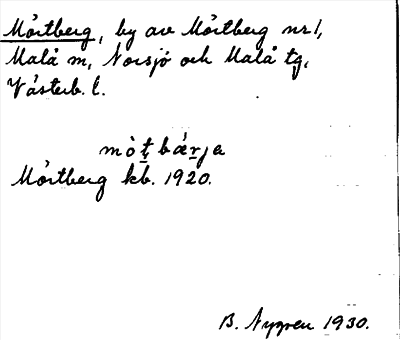 Mörtberg, by av Mörtberg nr 1,
Malå sn, Norsjö och Malå tg,
Västerb. l.
mò̀ṭbä̀rja
Mörtberg kb. 1920.
B. Nygren 1930.